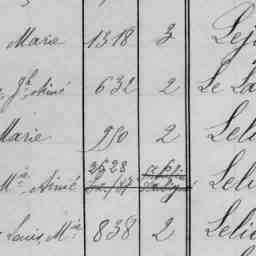 Marie 1318 3 Lej
Jh Aimé 632 2 Le La
Marie 990 2 Leli
Mie Aimé 2528 Leli
Louis Mie 838 2 Lelie